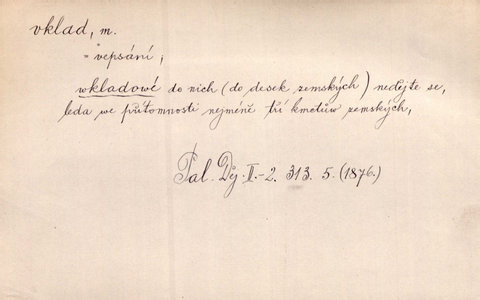 vklad, m.
= vepsání;
wkladowé do nich (do desek zemských) nedějte se,
leda we přítomnosti nejméně tří kmetůw zemských,
Pal. Děj. II.-2. 313. 5. (1876.)